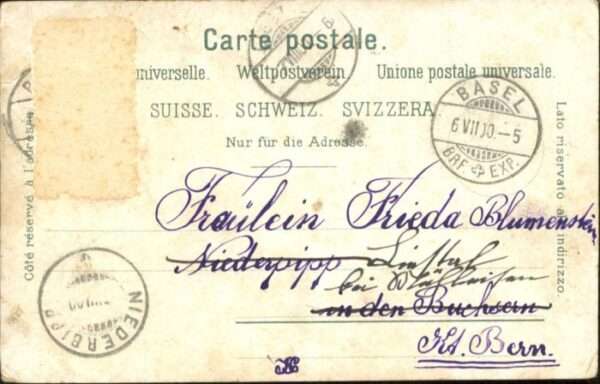 Carte postale.
universelle. Weltpostverein Unione postale universale.
SUISSE. SCHWEIZ. SVIZZERA
Nur für die Adresse.
Côté réservé à l'adresse
Lato riservato all'indirizzo
BASEL
6 VII 00.-5
BRF. EXP.
Fräulein Frieda Blumenstein
Niederpipp Liestal
bei
in den Buchsern
Kt. Bern.
NIEDERBIPP